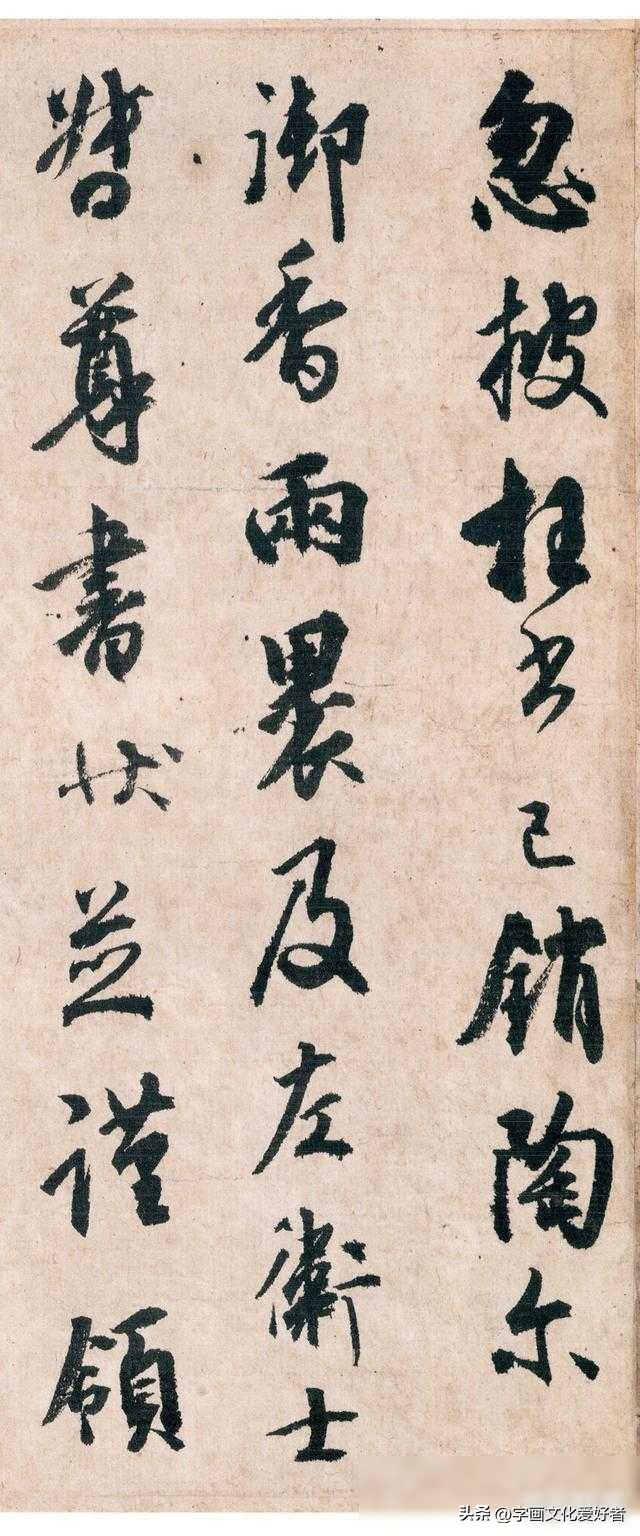 忽披枉书已銷陶尔
御香兩裹及左衛士
尊書状並謹領
头条 @字画文化爱好者